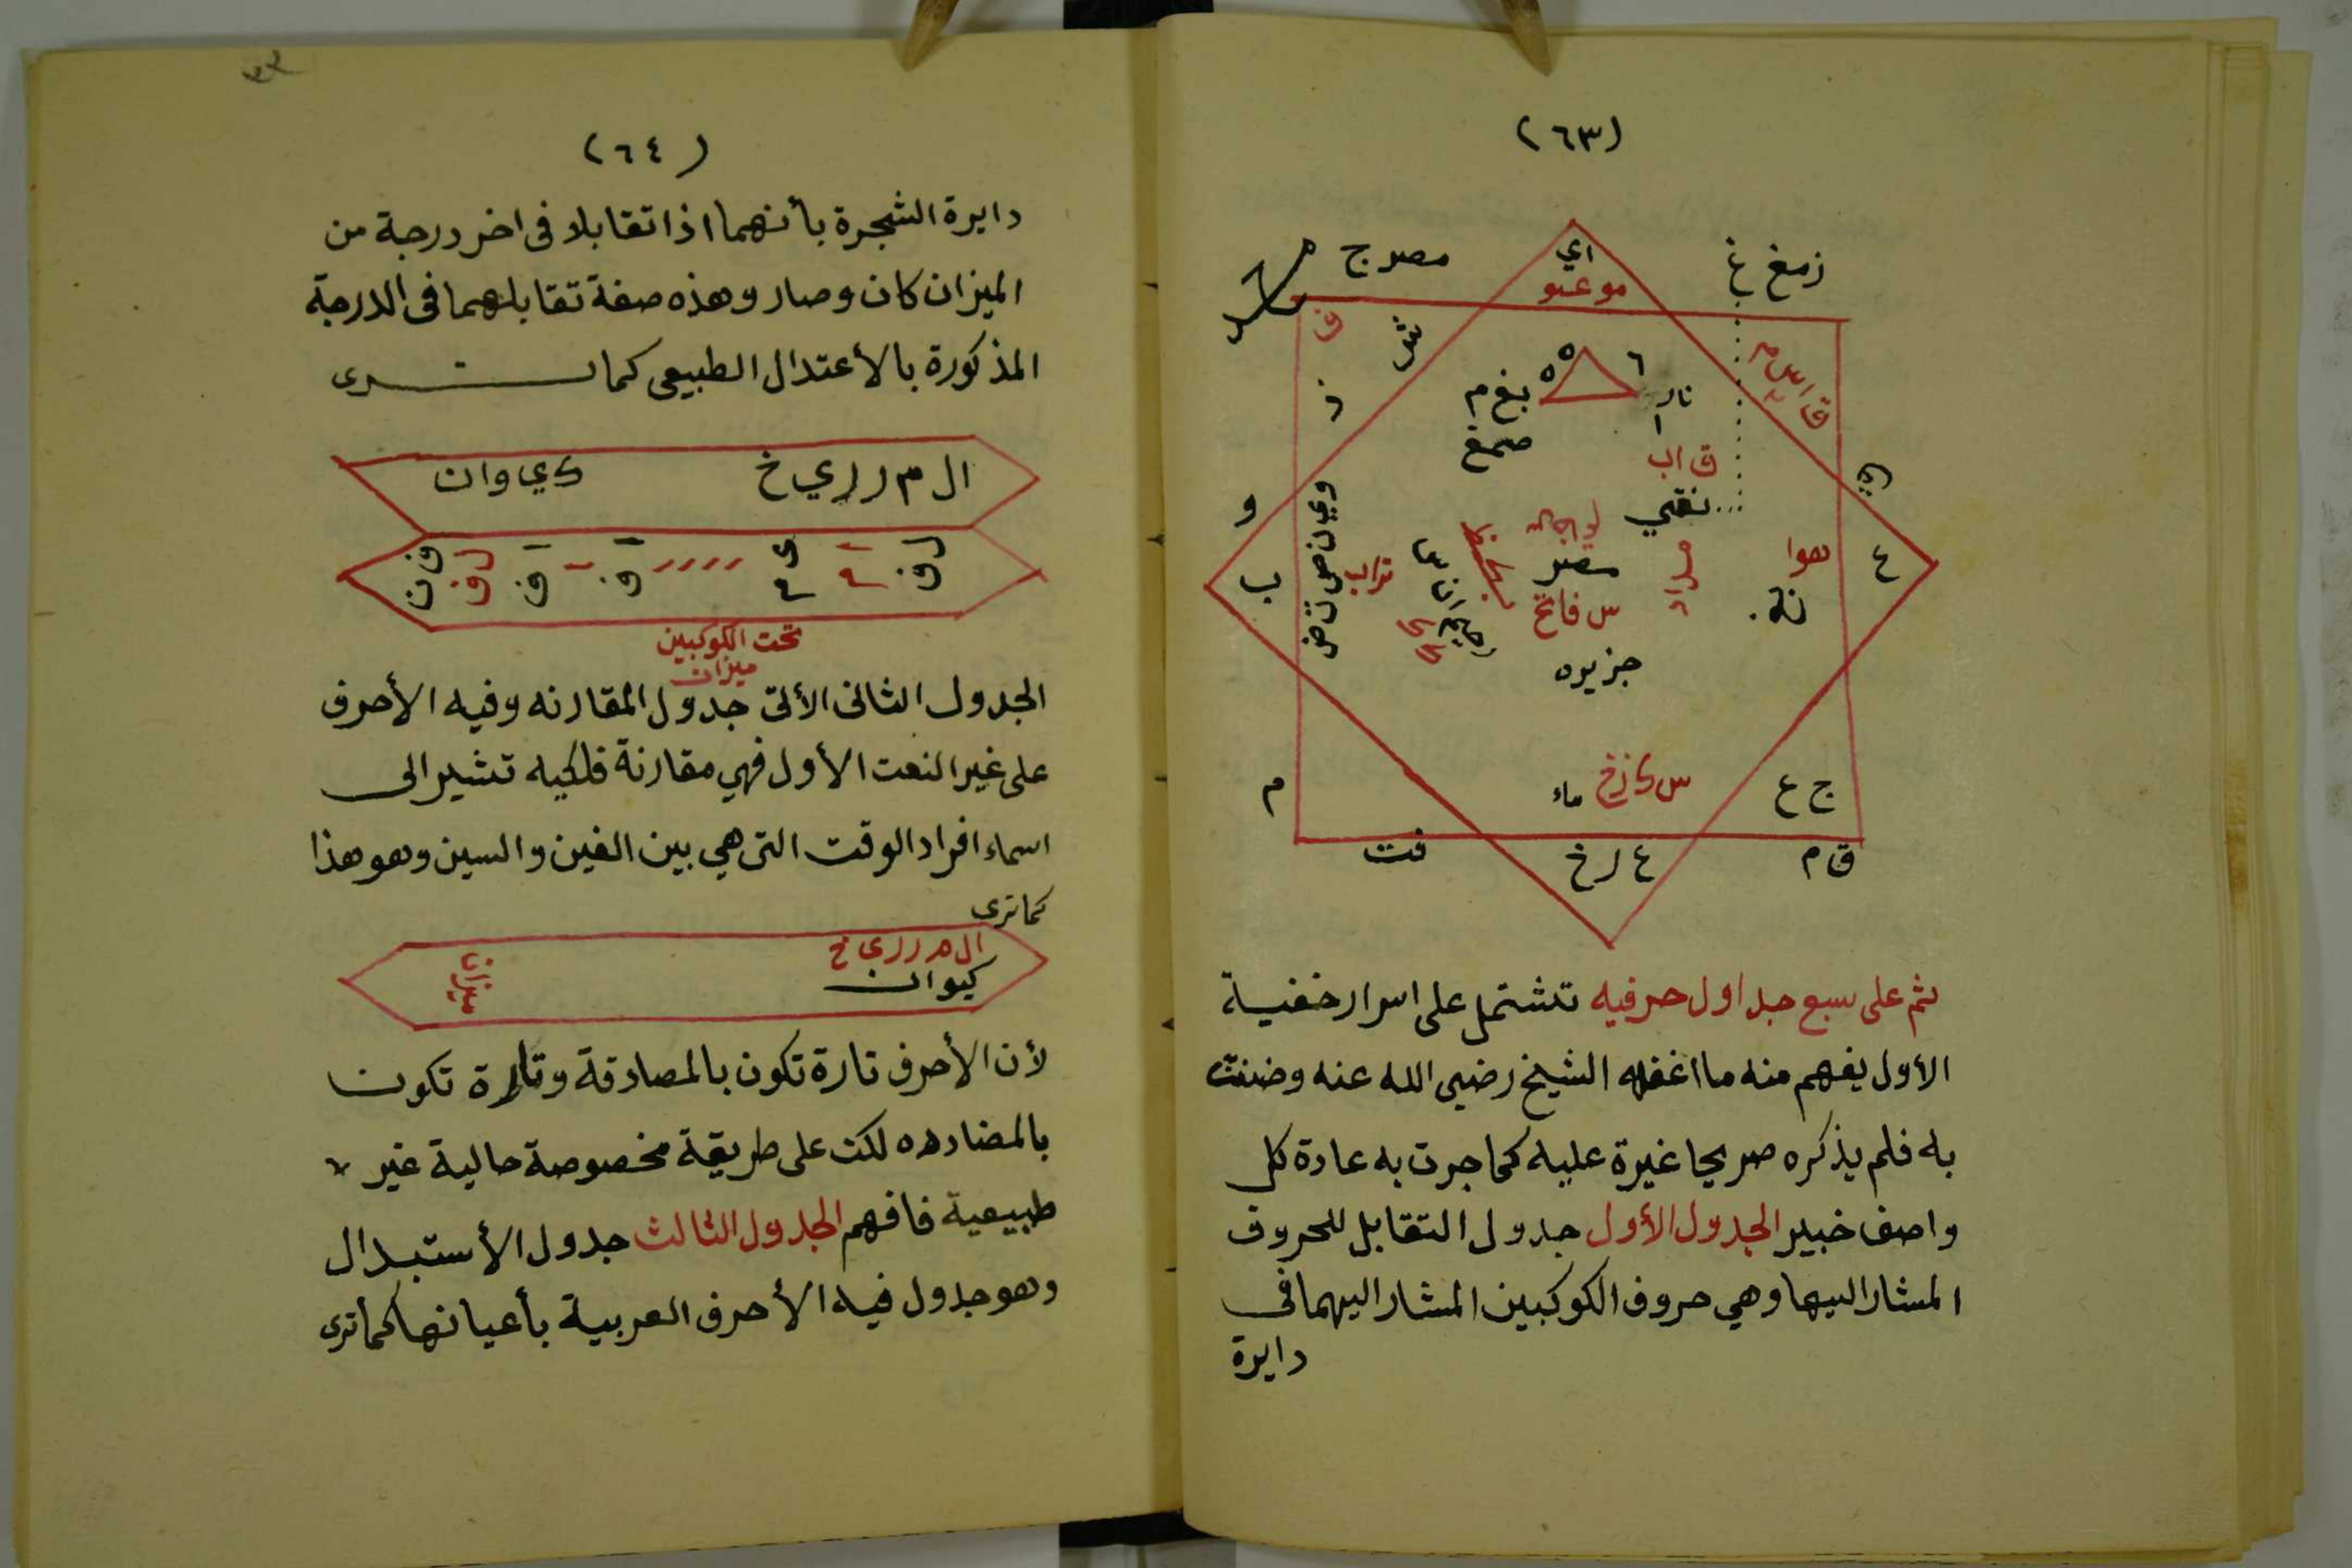 (٦٣)
زمغ غ
اي
مصر ج
مو عىو
ش
ز
٦
٥
٥
نار
ا
بغ م
صمغ
ق اب
نفي
و
هوا
ع
مصر
تراب
ب
س فاتح
جزيره
س ك زخ
ماء
ج ع
م
ق م
ع ر خ
فت
ثم على سبع جداول حرفيه تشتمل على اسرار خفية
الأول يفهم منه ما اغفله الشيخ رضي الله عنه وضنت
به فلم يذكره صريحا غيرة عليه كما جرت به عادة كل
واصف خبير الجدول الأول جدول التقابل للحروف
المشار اليها وهي حروف الكوكبين المشار اليهما في
دايرة
(٦٤)
دايرة الشجرة بأنهما اذا تقابلا فى اخر درجة من
الميزان كان وصار وهذه صفة تقابلهما فى الدرجة
المذكورة بالأعتدال الطبيعى كما ترى
ال م ر ر ي خ كي وان
تحت الكوكبين
ميزان
الجدول الثانى الأتى جدول المقارنه وفيه الأحرف
على غير النعت الأول فهي مقارنة فلكيه تشير الى
اسماء افراد الوقت التى هي بين الغين والسين وهو هذا
كما ترى
ال م ر ر ى خ
كيوان
لأن الأحرف تارة تكون بالمصادقة وتارة تكون
بالمضادده لكن على طريقة مخصوصة حالية غير
طبيعية فافهم الجدول الثالث جدول الأستبدال
وهو جدول فيه الأحرف العربية بأعيانها كما ترى